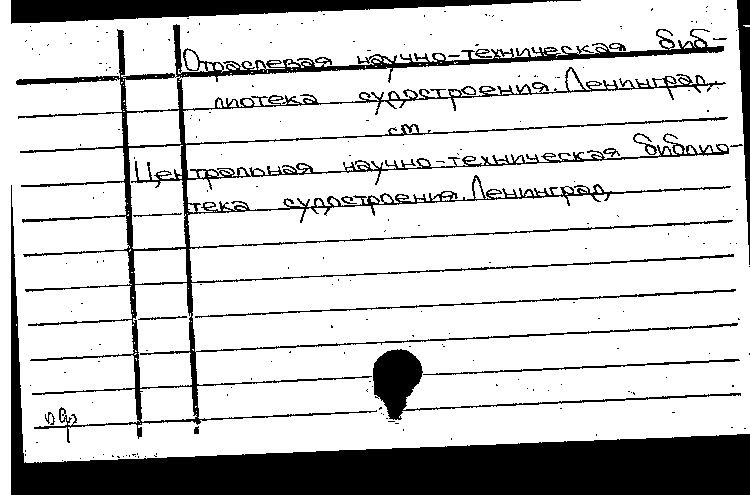 Отраслевая научно-техническая биб-
лиотека судостроения. Ленинград,
см.
Центральная научно-техническая библио-
тека судостроения. Ленинград,